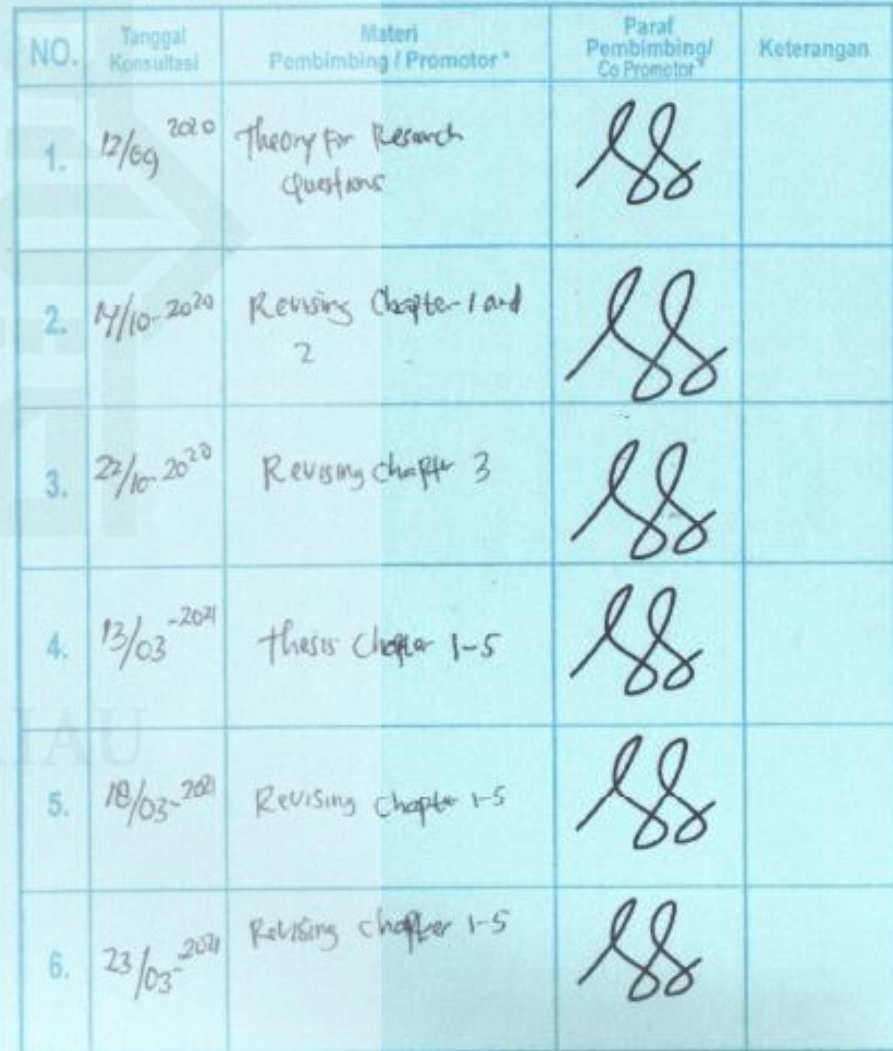 NO.
Tanggal
Konsultasi
Materi
Pembimbing / Promotor *
Paraf
Pembimbing/
Co Promotor *
Keterangan
1.
12/09 2020
Theory for Research
Questions
2.
14/10-2020
Revising Chapter 1 and
2
3.
22/10-2020
Revising chapter 3
4.
13/03-2021
thesis Chapter 1-5
5.
18/03-2021
Revising chapter 1-5
6.
23/03-2021
Revising chapter 1-5
IAU